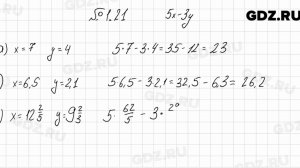 GDZ.RU
№ 1.21 5x-3y
) x=7 y=4 5·7-3·4=35-12=23
) x=6,5 y=2,1 5·6,5-3·2,1=32,5-6,3=26,2
) x=12 2/5 y=9 2/3 5·62/5-3·2⁹
GDZ.RU